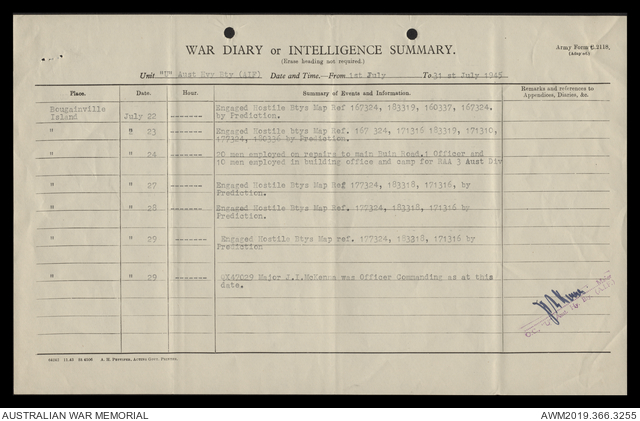 WAR DIARY or INTELLIGENCE SUMMARY.
(Erase heading not required.)
Army Form C.2118,
Unit "U" Aust Hvy Bty (AIF) Date and Time.—From 1st July To 31 st July 1945
Place. Date. Hour. Summary of Events and Information. Remarks and references to
Appendices, Diaries, &c.
Bougainville
Island July 22 ------- Engaged Hostile Btys Map Ref 167324, 183319, 160337, 167324,
by Prediction.
" " 23 ------- Engaged Hostile btys Map Ref. 167 324, 171316 183317, 171310,
177324, 180336 by Prediction.
" " 24 ------- 20 men employed on repairs to main Buin Road,1 Officer and
10 men employed in building office and camp for RAA 3 Aust Div
" " 27 ------- Engaged Hostile Btys Map Ref 177324, 183318, 171316, by
Prediction.
" " 28 ------- Engaged Hostile Btys Map Ref. 177324, 183318, 171316 by
Prediction.
" " 29 ------- Engaged Hostile Btys Map ref. 177324, 183318, 171316 by
Prediction
" " 29 ------- QX47029 Major J.I.McKenna was Officer Commanding as at this
date.
AUSTRALIAN WAR MEMORIAL AWM2019.366.3255